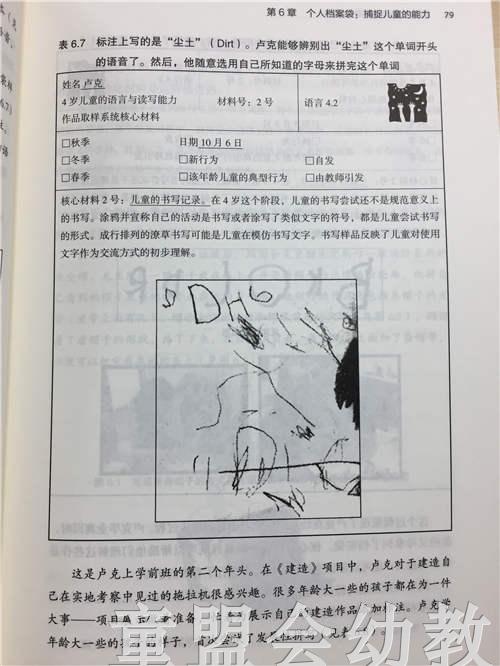 第 6 章　个人档案袋：捕捉儿童的能力　79
表 6.7　标注上写的是“尘土”（Dirt）。卢克能够辨别出“尘土”这个单词开头
的语音了。然后，他随意选用自己所知道的字母来拼完这个单词
姓名 卢克
4 岁儿童的语言与读写能力　材料号：2 号　语言 4.2
作品取样系统核心材料
□秋季　日期 10 月 6 日
□冬季　□新行为　□自发
□春季　□该年龄儿童的典型行为　□由教师引发
核心材料 2 号：儿童的书写记录。在 4 岁这个阶段，儿童的书写尝试还不是规范意义上
的书写。涂鸦并宣称自己的活动是书写或者涂写了类似文字的符号，都是儿童尝试书写
的形式。成行排列的潦草书写可能是儿童在模仿书写文字。书写样品反映了儿童对使用
文字作为交流方式的初步理解。
DH6
这是卢克上学前班的第二个年头。在《建造》项目中，卢克对于建造自
己在实地考察中见过的拖拉机很感兴趣。很多年龄大一些的孩子都在为一件
大事——项目
展示自己的建造作品
加标注。卢克学
年龄大一些的
童盟会幼教